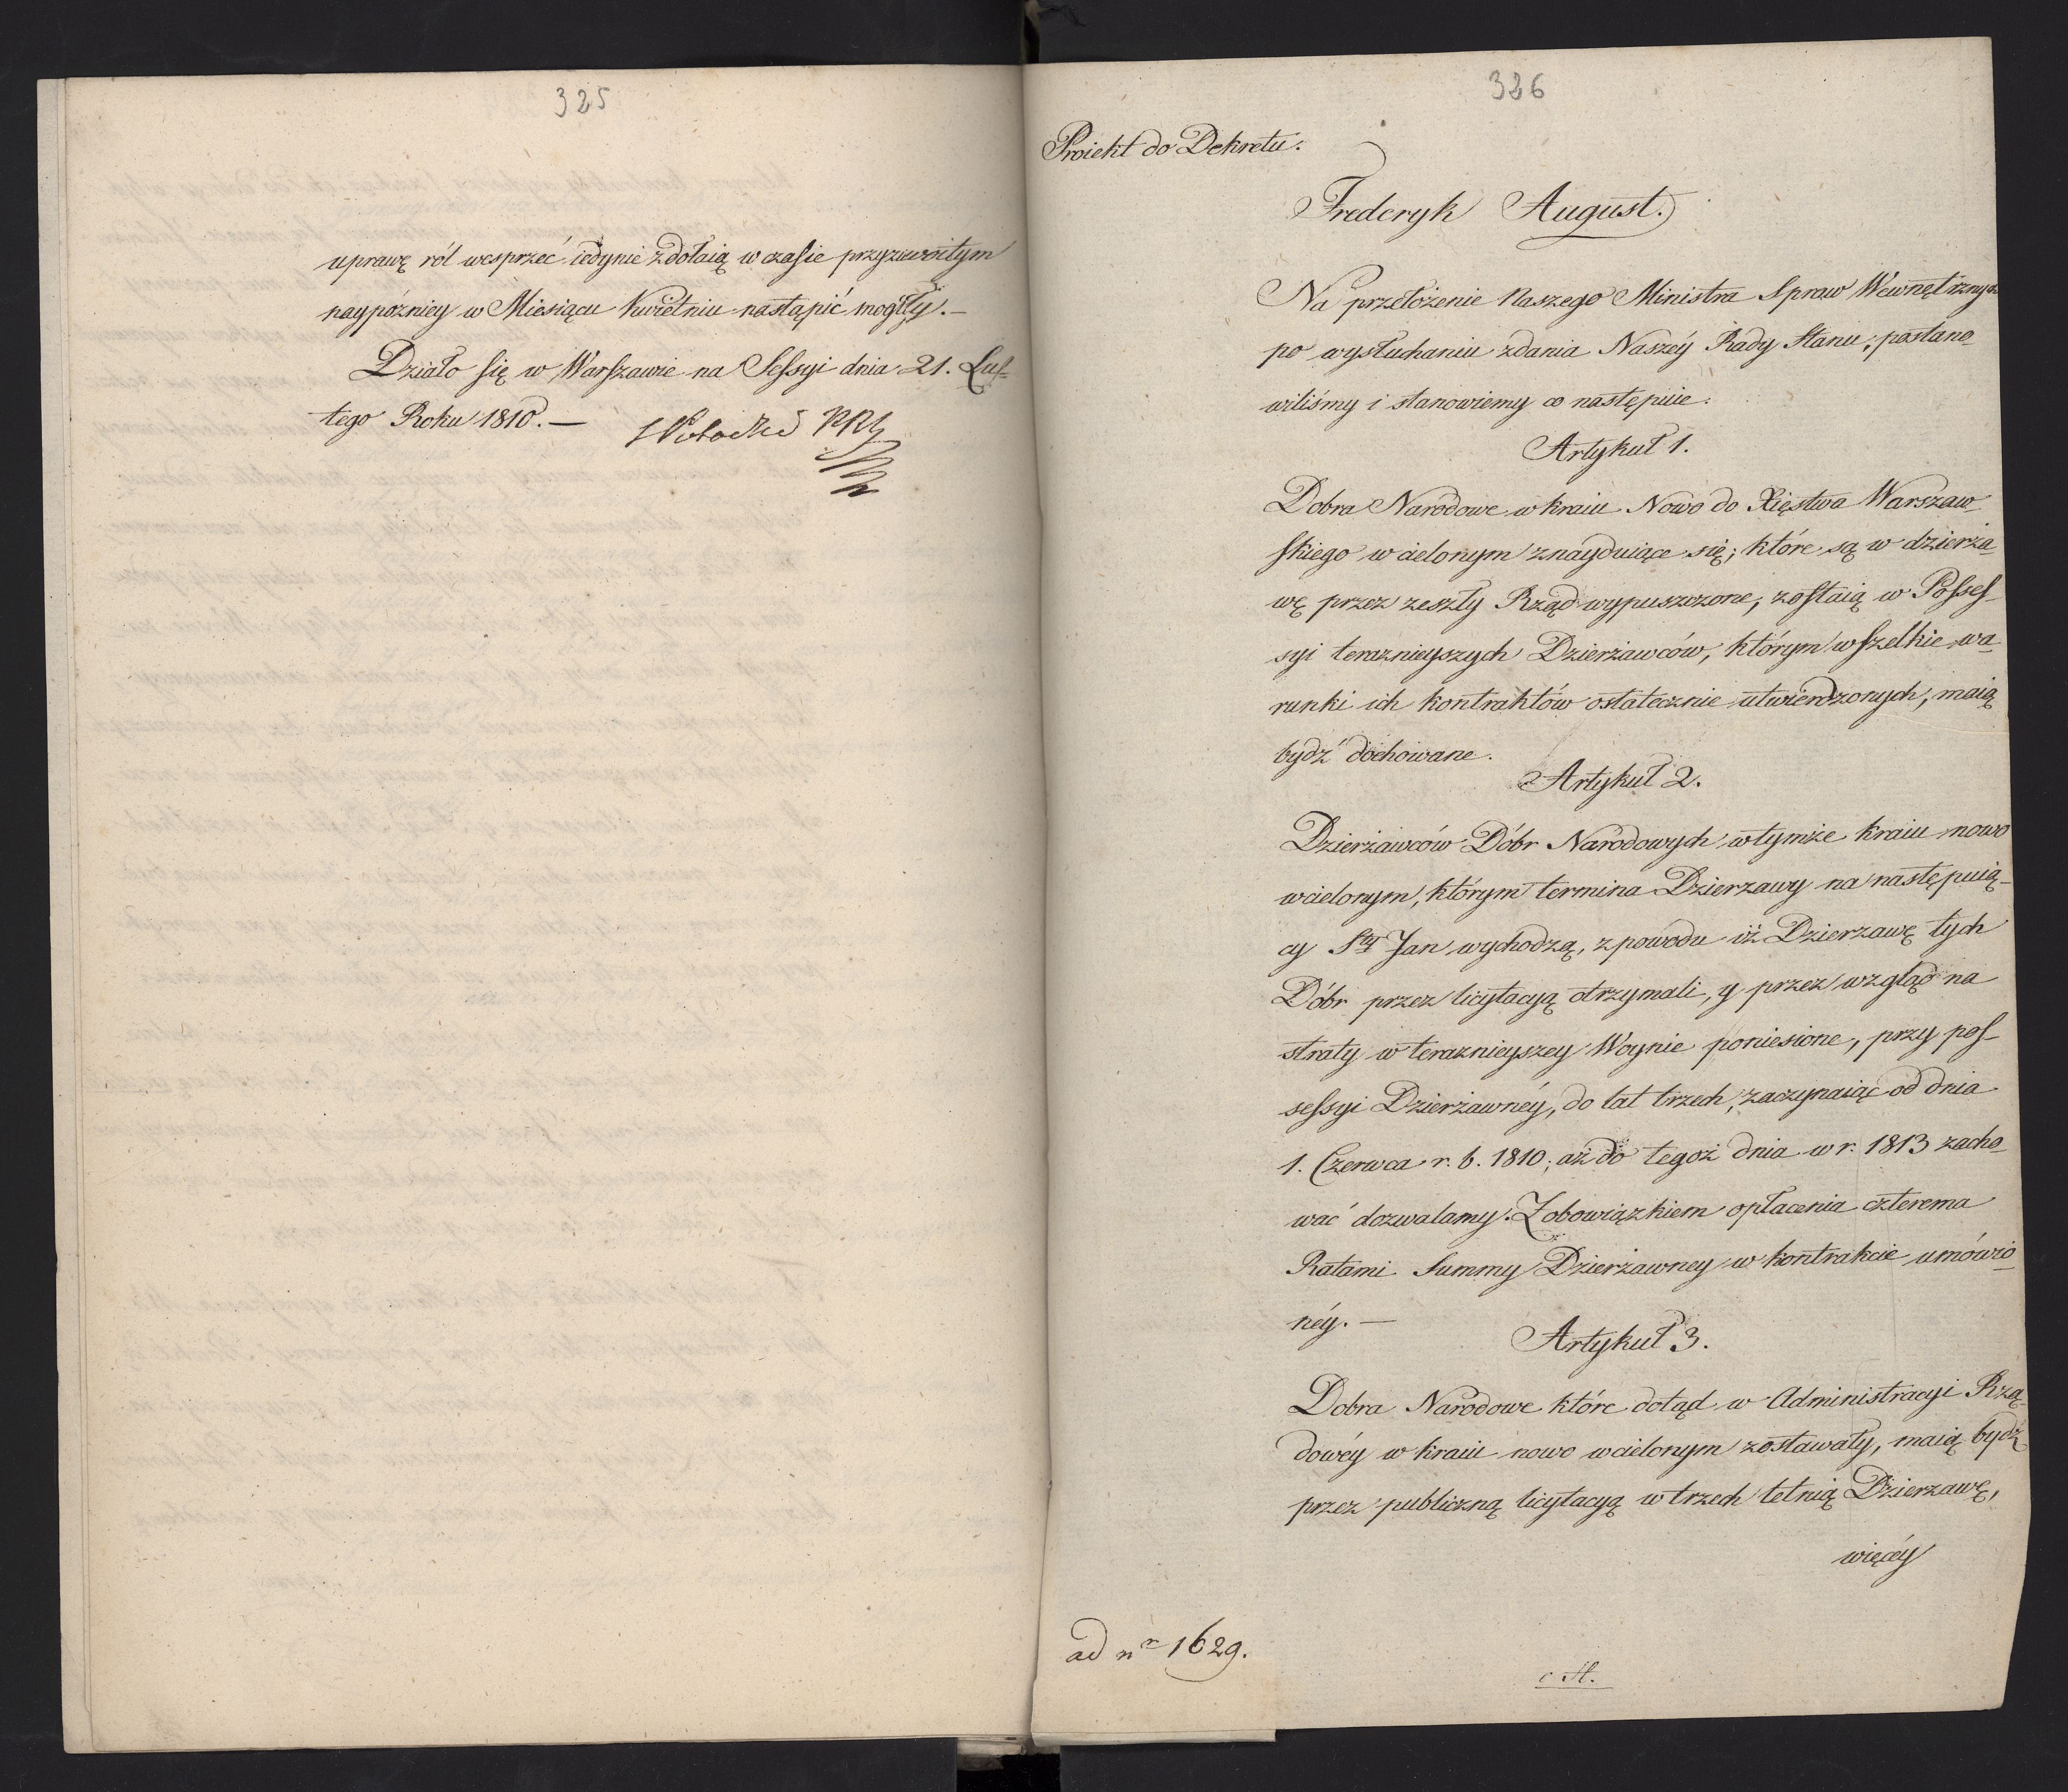 325
uprawę ról wesprzeć iedynie zdołaią w czasie przyzwoitym
naypóźniey w Miesiącu Kwietniu nastąpić mogły.—
Działo się w Warszawie na Sessyi dnia 21. Lu-
tego Roku 1810.—
326
Proiekt do Dekretu.
Frederyk August.
Na przełożenie Naszego Ministra Spraw Wewnętrznych
po wysłuchaniu zdania Naszéy Rady Stanu; postano-
wiliśmy i stanowiemy co następuie:
Artykuł 1.
Dobra Narodowe w kraiu Nowo do Xięstwa Warszaw-
skiego wcielonym znayduiące się; które są w dzierża-
wę przez zeszły Rząd wypuszczone, zostaią w Posses-
syi teraznieyszych Dzierżawców, którym wszelkie wa-
runki ich kontraktów ostatecznie utwierdzonych, maią
bydź dochowane.
Artykuł 2.
Dzierżawców Dóbr Narodowych w tymże kraiu nowo
wcielonym, którym termina Dzierzawy na następuią-
cy Sty Jan wychodzą, z powodu iż Dzierzawę tych
Dóbr przez licytacyą otrzymali, y przez wzgląd na
straty w teraznieyszey Woynie poniesione, przy pos-
sessyi Dzierżawnéy, do lat trzech, zaczynaiąc od dnia
1. Czerwca r. b. 1810; aż do tegoż dnia w r. 1813 zacho-
wać dozwalamy. Z obowiązkiem opłacenia czterema
Ratami Summy Dzierżawney w kontrakcie umówio-
néy.—
Artykuł 3.
Dobra Narodowe które dotąd w Administracyi Rzą-
dowéy w kraiu nowo wcielonym zostawały, maią bydź
przez publiczną licytacyą w trzech letnią Dzierzawę,
więcéy
ad nr 1629.